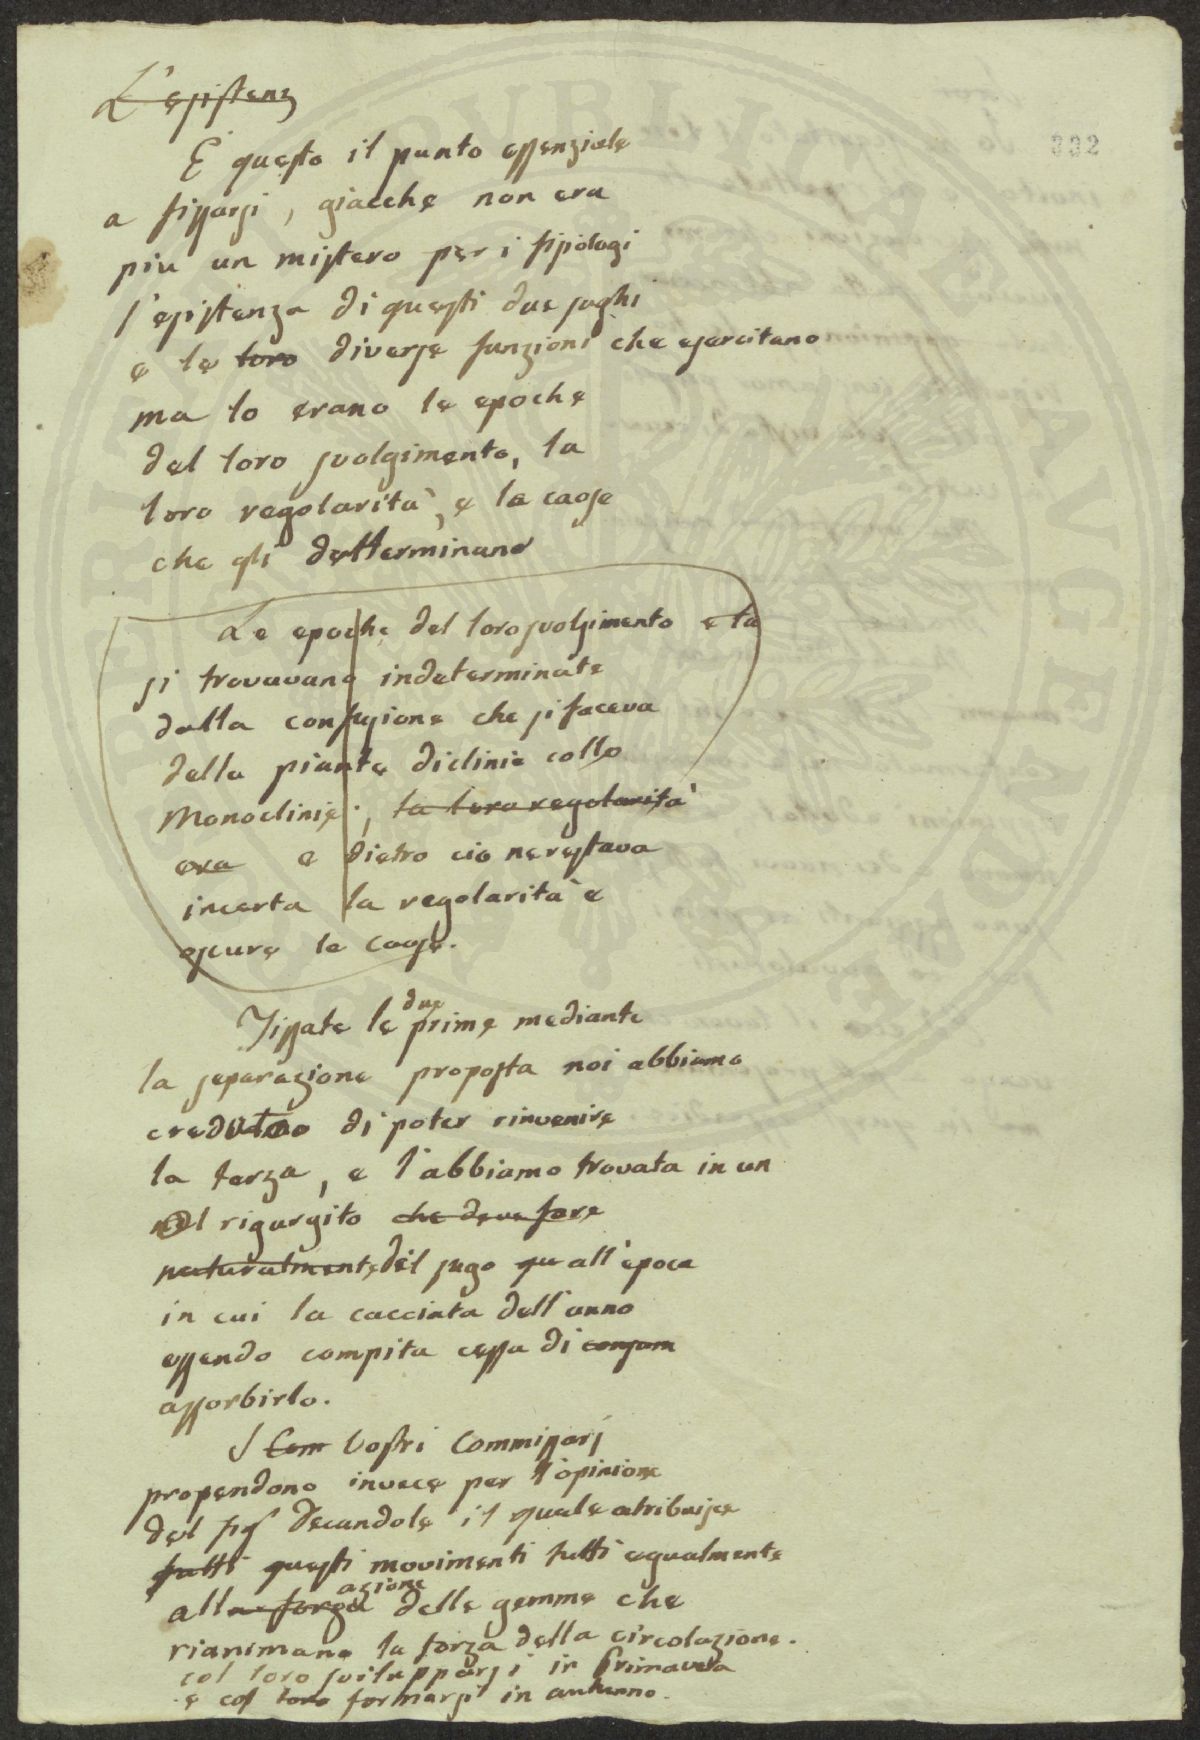 L'esistenz
332
È questo il punto essenziale
a fissarsi, giacche non era
piu un mistero per i fisiologi
l'esistenza di questi due sughi
e le loro diverse funzioni che esercitano
ma lo erano le epoche
del loro svolgimento, la
loro regolarità, e le caose
che gli detterminano
Le epoche del loro svolgimento e la
si trovavano indeterminate
dalla confusione che si faceva
delle piante diclinie colle
Monoclinie, la loro regolarità
era e dietro cio ne restava
incerta la regolarità e
oscure le caose.
Fissate le due prime mediante
la separazione proposta noi abbiamo
creduto di poter rinvenire
la terza, e l'abbiamo trovata in un
rigurgito che deve fare
naturalmente del sugo qu all'epoca
in cui la cacciata dell'anno
essendo compita cessa di consum
assorbirlo.
I Com Vostri Commissarj
propendono invece per l'opinione
del sig Decandole il quale atribuisce
tutti questi movimenti tutti egualmente
alla forza azione delle gemme che
rianimano la forza della circolazione.
col loro svilupparsi in Primavera
e col loro formarsi in autunno.